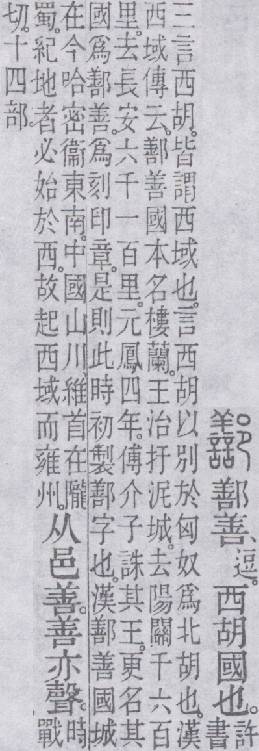 鄯善、逗。西胡國也。許書
三言西胡。皆謂西域也。言西胡以別於匈奴爲北胡也。漢
西域傳云。鄯善國本名樓蘭。王治扜泥城。去陽關千六百
里。去長安六千一百里。元鳳四年。傅介子誅其王。更名其
國爲鄯善。爲刻印章。是則此時初製鄯字也。漢鄯善國城
在今哈密衞東南。中國山川維首在隴
蜀。紀地者必始於西。故起西域而雍州。
从邑善。善亦聲。時戰
切。十四部。